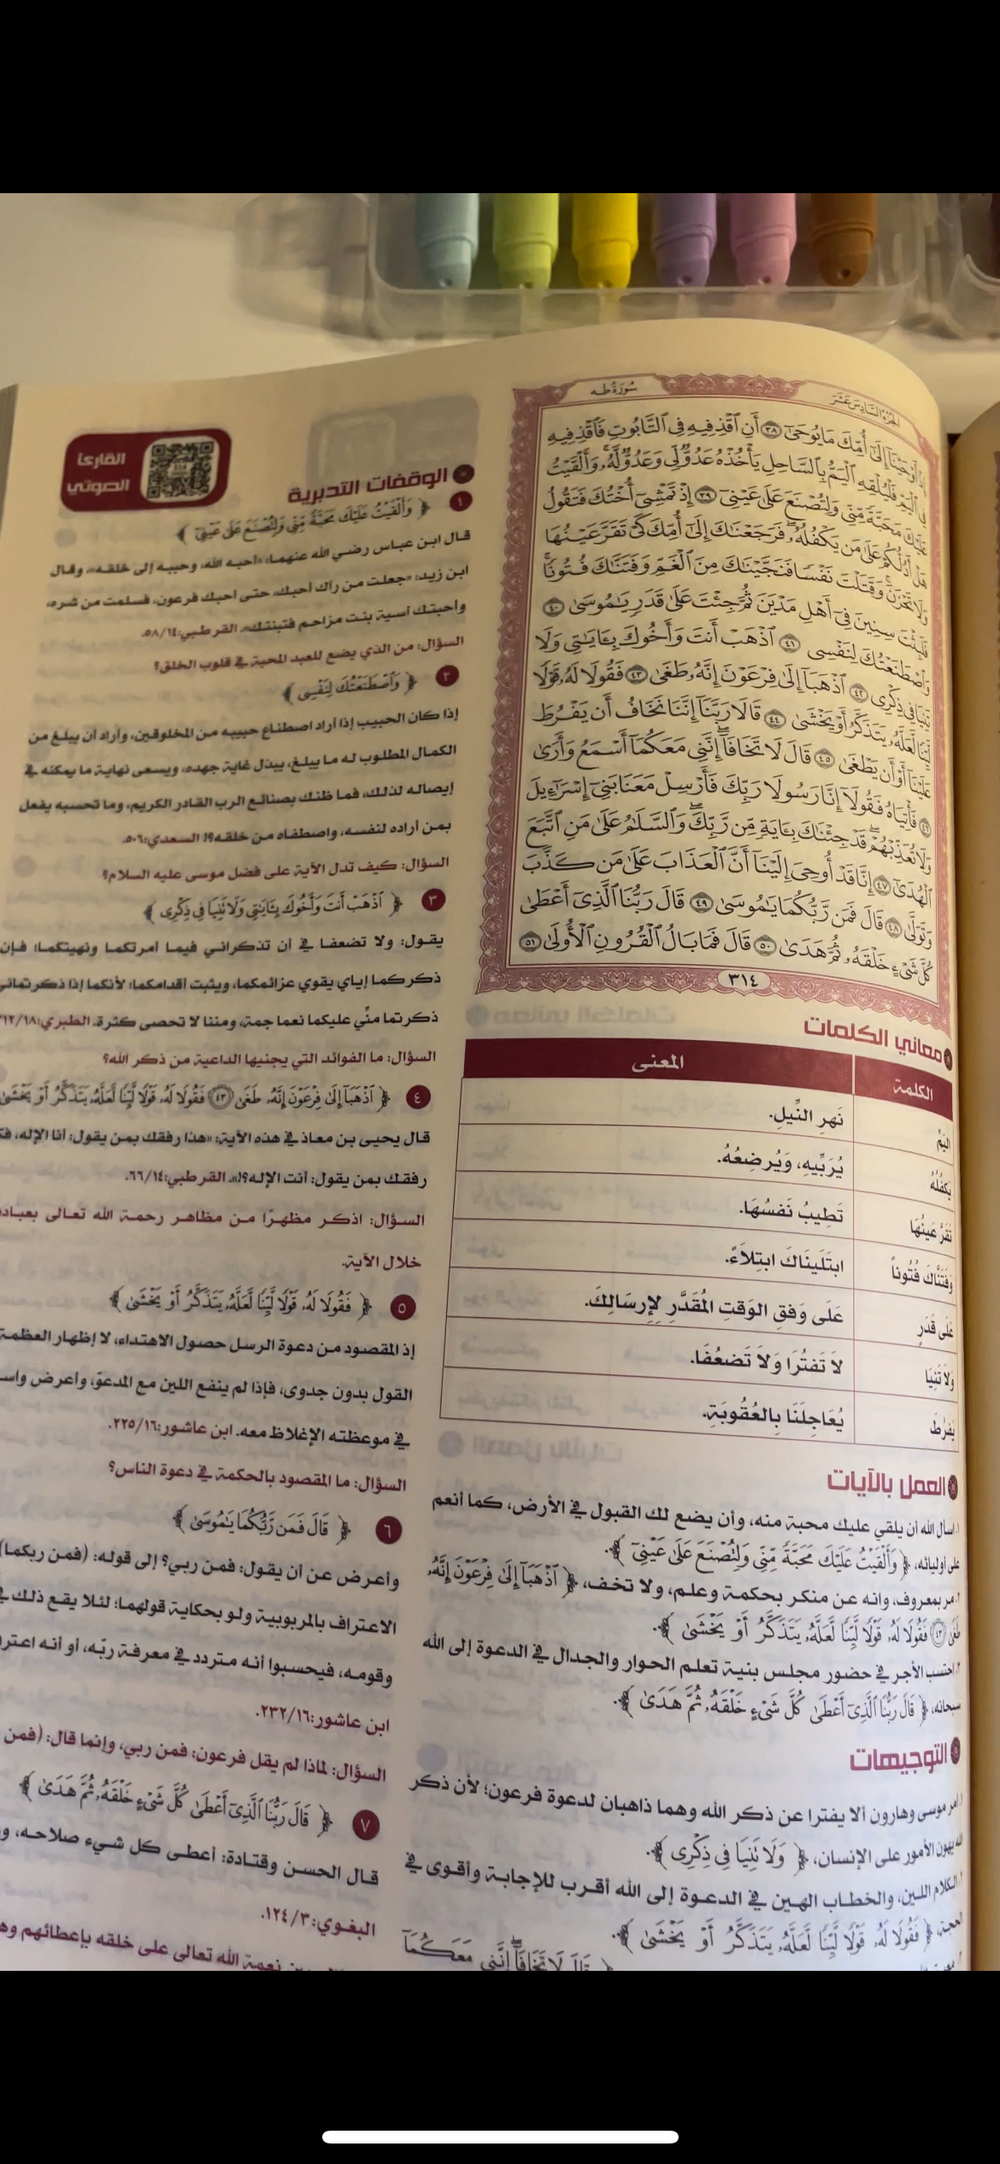 الجزء السادس عشر
سورة طه
إِذْ أَوْحَيْنَا إِلَىٰ أُمِّكَ مَا يُوحَىٰ ٣٨ أَنِ اقْذِفِيهِ فِي التَّابُوتِ فَاقْذِفِيهِ
فِي الْيَمِّ فَلْيُلْقِهِ الْيَمُّ بِالسَّاحِلِ يَأْخُذْهُ عَدُوٌّ لِّي وَعَدُوٌّ لَّهُ ۚ وَأَلْقَيْتُ
عَلَيْكَ مَحَبَّةً مِّنِّي وَلِتُصْنَعَ عَلَىٰ عَيْنِي ٣٩ إِذْ تَمْشِي أُخْتُكَ فَتَقُولُ
هَلْ أَدُلُّكُمْ عَلَىٰ مَن يَكْفُلُهُ ۖ فَرَجَعْنَاكَ إِلَىٰ أُمِّكَ كَيْ تَقَرَّ عَيْنُهَا
وَلَا تَحْزَنَ ۚ وَقَتَلْتَ نَفْسًا فَنَجَّيْنَاكَ مِنَ الْغَمِّ وَفَتَنَّاكَ فُتُونًا ۚ
فَلَبِثْتَ سِنِينَ فِي أَهْلِ مَدْيَنَ ثُمَّ جِئْتَ عَلَىٰ قَدَرٍ يَا مُوسَىٰ ٤٠
وَاصْطَنَعْتُكَ لِنَفْسِي ٤١ اذْهَبْ أَنتَ وَأَخُوكَ بِآيَاتِي وَلَا
تَنِيَا فِي ذِكْرِي ٤٢ اذْهَبَا إِلَىٰ فِرْعَوْنَ إِنَّهُ طَغَىٰ ٤٣ فَقُولَا لَهُ قَوْلًا
لَّيِّنًا لَّعَلَّهُ يَتَذَكَّرُ أَوْ يَخْشَىٰ ٤٤ قَالَا رَبَّنَا إِنَّنَا نَخَافُ أَن يَفْرُطَ
عَلَيْنَا أَوْ أَن يَطْغَىٰ ٤٥ قَالَ لَا تَخَافَا ۖ إِنَّنِي مَعَكُمَا أَسْمَعُ وَأَرَىٰ
٤٦ فَأْتِيَاهُ فَقُولَا إِنَّا رَسُولَا رَبِّكَ فَأَرْسِلْ مَعَنَا بَنِي إِسْرَائِيلَ
وَلَا تُعَذِّبْهُمْ ۖ قَدْ جِئْنَاكَ بِآيَةٍ مِّن رَّبِّكَ ۖ وَالسَّلَامُ عَلَىٰ مَنِ اتَّبَعَ
الْهُدَىٰ ٤٧ إِنَّا قَدْ أُوحِيَ إِلَيْنَا أَنَّ الْعَذَابَ عَلَىٰ مَن كَذَّبَ
وَتَوَلَّىٰ ٤٨ قَالَ فَمَن رَّبُّكُمَا يَا مُوسَىٰ ٤٩ قَالَ رَبُّنَا الَّذِي أَعْطَىٰ
كُلَّ شَيْءٍ خَلْقَهُ ثُمَّ هَدَىٰ ٥٠ قَالَ فَمَا بَالُ الْقُرُونِ الْأُولَىٰ ٥١
٣١٤
معاني الكلمات
الكلمة المعنى
اليَمِّ نَهرِ النِّيلِ.
يَكفُلُهُ يُرَبِّيهِ، وَيُرضِعُهُ.
تَقَرَّ عَينُهَا تَطِيبُ نَفسُهَا.
وَفَتَنَّاكَ فُتُوناً ابتَلَينَاكَ ابتِلَاءً.
عَلَى قَدَرٍ عَلَى وَفقِ الوَقتِ المُقَدَّرِ لِإِرسَالِكَ.
وَلَا تَنِيَا لَا تَفتُرَا وَلَا تَضعُفَا.
يَفرُطَ يُعَاجِلَنَا بِالعُقُوبَةِ.
العمل بالآيات
١. اسأل الله أن يلقي عليك محبة منه، وأن يضع لك القبول في الأرض، كما أنعم
على أوليائه، ﴿ وَأَلْقَيْتُ عَلَيْكَ مَحَبَّةً مِّنِّي وَلِتُصْنَعَ عَلَىٰ عَيْنِي ﴾.
٢. مر بمعروف، وانه عن منكر بحكمة وعلم، ولا تخف، ﴿ اذْهَبَا إِلَىٰ فِرْعَوْنَ إِنَّهُ
طَغَىٰ ٤٣ فَقُولَا لَهُ قَوْلًا لَّيِّنًا لَّعَلَّهُ يَتَذَكَّرُ أَوْ يَخْشَىٰ ﴾.
٣. احتسب الأجر في حضور مجلس بنية تعلم الحوار والجدال في الدعوة إلى الله
سبحانه، ﴿ قَالَ رَبُّنَا الَّذِي أَعْطَىٰ كُلَّ شَيْءٍ خَلْقَهُ ثُمَّ هَدَىٰ ﴾.
التوجيهات
أمر موسى وهارون ألا يفترا عن ذكر الله وهما ذاهبان لدعوة فرعون؛ لأن ذكر
الله يهون الأمور على الإنسان، ﴿ وَلَا تَنِيَا فِي ذِكْرِي ﴾.
الكلام اللين، والخطاب الهين في الدعوة إلى الله أقرب للإجابة وأقوى في
الحجة، ﴿ فَقُولَا لَهُ قَوْلًا لَّيِّنًا لَّعَلَّهُ يَتَذَكَّرُ أَوْ يَخْشَىٰ ﴾.
﴿ قَالَ لَا تَخَافَا إِنَّنِي مَعَكُمَا
القارئ
الصوتي
الوقفات التدبرية
١ ﴿ وَأَلْقَيْتُ عَلَيْكَ مَحَبَّةً مِّنِّي وَلِتُصْنَعَ عَلَىٰ عَيْنِي ﴾
قال ابن عباس رضي الله عنهما: «أحبه الله، وحببه إلى خلقه»، وقال
ابن زيد: «جعلت من رآك أحبك، حتى أحبك فرعون، فسلمت من شره،
وأحبتك آسية بنت مزاحم فتبنتك». القرطبي:٥٨/١٤.
السؤال: من الذي يضع للعبد المحبة في قلوب الخلق؟
٢ ﴿ وَاصْطَنَعْتُكَ لِنَفْسِي ﴾
إذا كان الحبيب إذا أراد اصطناع حبيبه من المخلوقين، وأراد أن يبلغ من
الكمال المطلوب له ما يبلغ، يبذل غاية جهده، ويسعى نهاية ما يمكنه في
إيصاله لذلك، فما ظنك بصنائع الرب القادر الكريم، وما تحسبه يفعل
بمن أراده لنفسه، واصطفاه من خلقه؟! السعدي:٥٠٦.
السؤال: كيف تدل الآية على فضل موسى عليه السلام؟
٣ ﴿ اذْهَبْ أَنتَ وَأَخُوكَ بِآيَاتِي وَلَا تَنِيَا فِي ذِكْرِي ﴾
يقول: ولا تضعفا في أن تذكراني فيما أمرتكما ونهيتكما؛ فإن
ذكركما إياي يقوي عزائمكما، ويثبت أقدامكما؛ لأنكما إذا ذكرتماني
ذكرتما منِّي عليكما نعما جمة، ومننا لا تحصى كثرة. الطبري:٣١٢/١٨
السؤال: ما الفوائد التي يجنيها الداعية من ذكر الله؟
٤ ﴿ اذْهَبَا إِلَىٰ فِرْعَوْنَ إِنَّهُ طَغَىٰ ٤٣ فَقُولَا لَهُ قَوْلًا لَّيِّنًا لَّعَلَّهُ يَتَذَكَّرُ أَوْ يَخْشَىٰ
قال يحيى بن معاذ في هذه الآية: «هذا رفقك بمن يقول: أنا الإله،
رفقك بمن يقول: أنت الإله؟!». القرطبي:٦٦/١٤.
السؤال: اذكر مظهرًا من مظاهر رحمة الله تعالى بعباده
خلال الآية.
٥ ﴿ فَقُولَا لَهُ قَوْلًا لَّيِّنًا لَّعَلَّهُ يَتَذَكَّرُ أَوْ يَخْشَىٰ ﴾
إذ المقصود من دعوة الرسل حصول الاهتداء، لا إظهار العظمة
القول بدون جدوى، فإذا لم ينفع اللين مع المدعوّ، وأعرض
في موعظته الإغلاظ معه. ابن عاشور:٢٢٥/١٦.
السؤال: ما المقصود بالحكمة في دعوة الناس؟
٦ ﴿ قَالَ فَمَن رَّبُّكُمَا يَا مُوسَىٰ ﴾
وأعرض عن أن يقول: فمن ربي؟ إلى قوله: (فمن ربكما)
الاعتراف بالمربوبية ولو بحكاية قولهما؛ لئلا يقع ذلك في
وقومه، فيحسبوا أنه متردد في معرفة ربّه، أو أنه
ابن عاشور:٢٣٢/١٦.
السؤال: لماذا لم يقل فرعون: فمن ربي، وإنما قال: (فمن
٧ ﴿ قَالَ رَبُّنَا الَّذِي أَعْطَىٰ كُلَّ شَيْءٍ خَلْقَهُ ثُمَّ هَدَىٰ ﴾
قال الحسن وقتادة: أعطى كل شيء صلاحه،
البغوي:١٢٤/٣.
نعمة الله تعالى على خلقه بإعطائهم